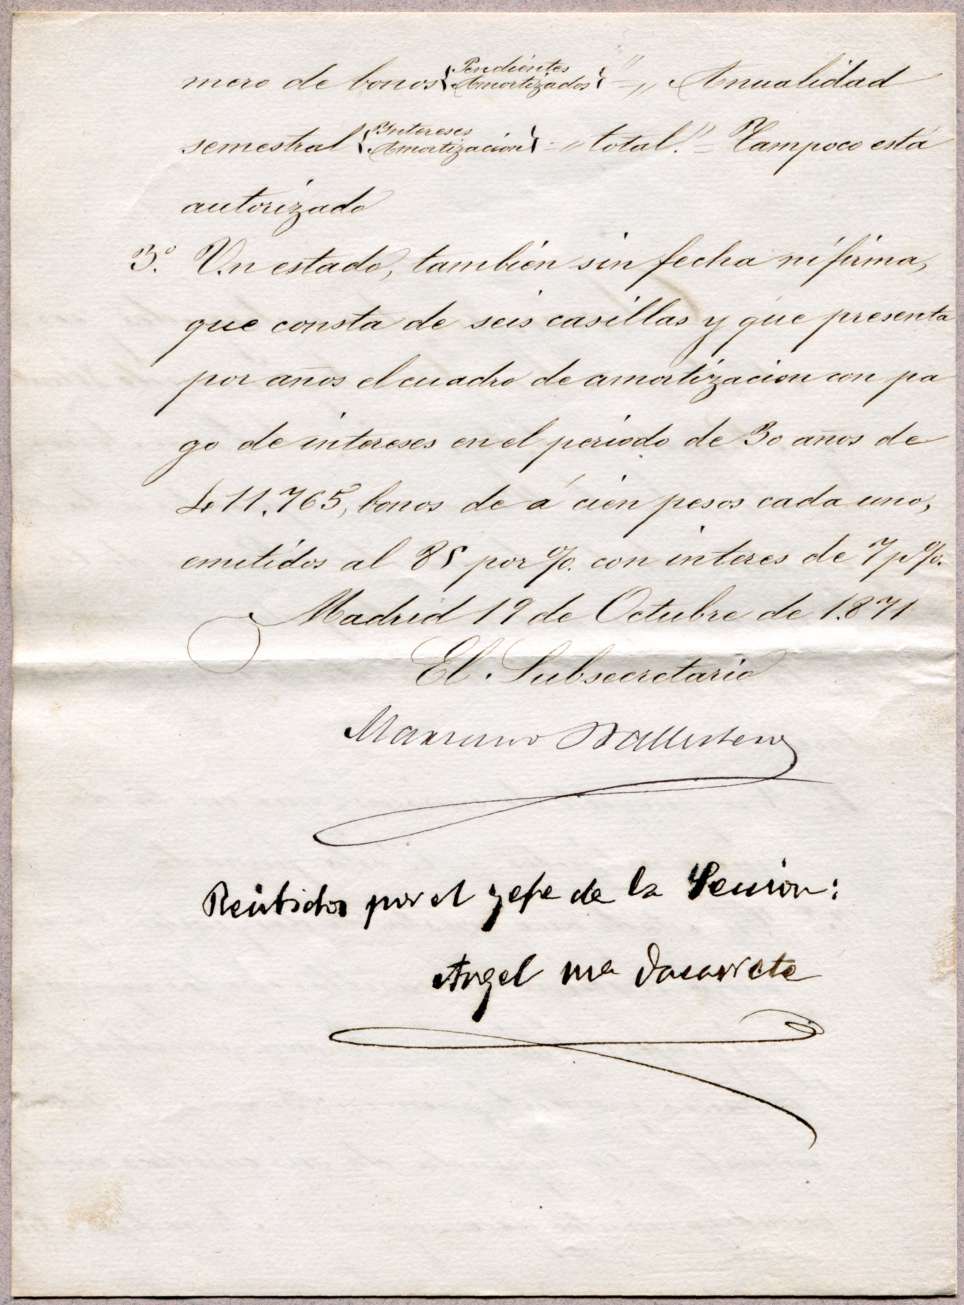 mero de bonos { Pendientes Amortizados } " = „ Anualidad
semestral { Intereses Amortizacion } = „ total." = Tampoco está
autorizado
3.º Un estado, también sin fecha ni firma,
que consta de seis casillas y que presenta
por años el cuadro de amortizacion con pa
go de intereses en el periodo de 30 años de
411.765, bonos de á cien pesos cada uno,
emitidos al 85 por %. con interes de 7 p%.
Madrid 19 de Octubre de 1.871
El Subsecretario
Mariano Ballestero
Recibidos por el gefe de la Seccion:
Angel Mª Dacarrete